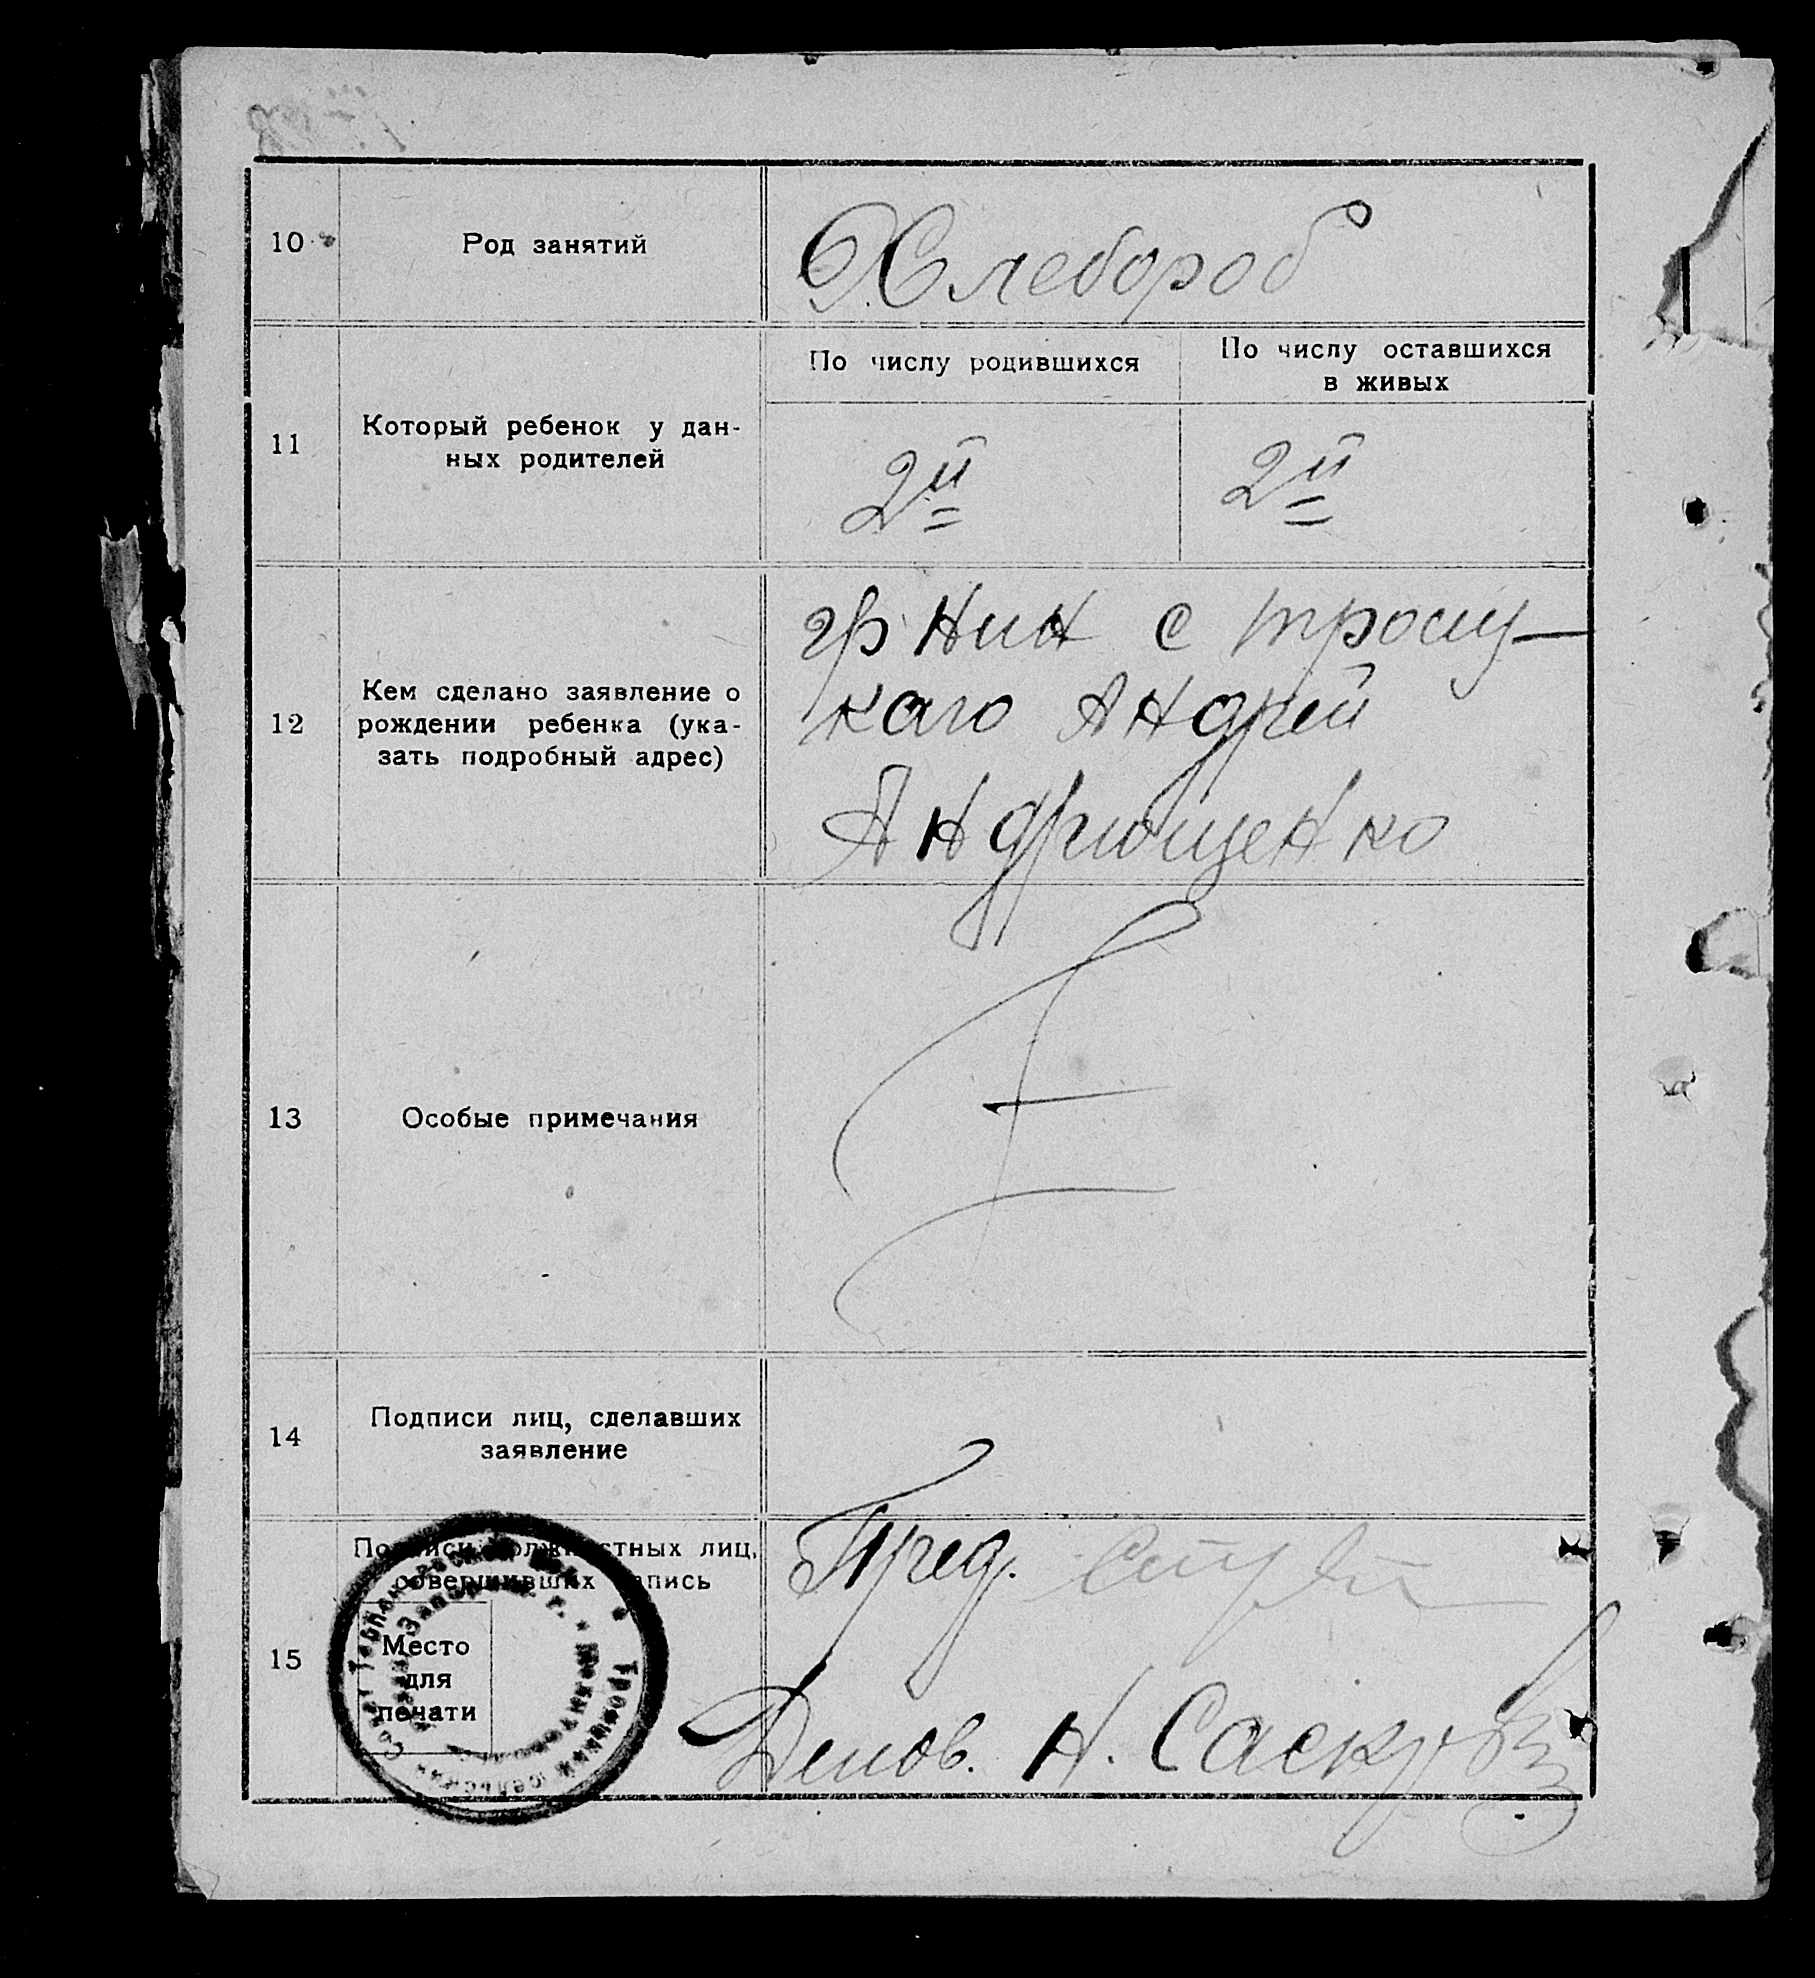 10
Род занятий
Хлебороб
11
Который ребенок у дан-
ных родителей
По числу родившихся
По числу оставшихся
в живых
2й
2й
12
Кем сделано заявление о
рождении ребенка (ука-
зать подробный адрес)
гр нин с Троиц-
каго Андрей
Андрющенко
13
Особые примечания
14
Подписи лиц, сделавших
заявление
15
Подписи должностных лиц,
совершивших запись
Место
для
печати
Пред.
Делов. Н.